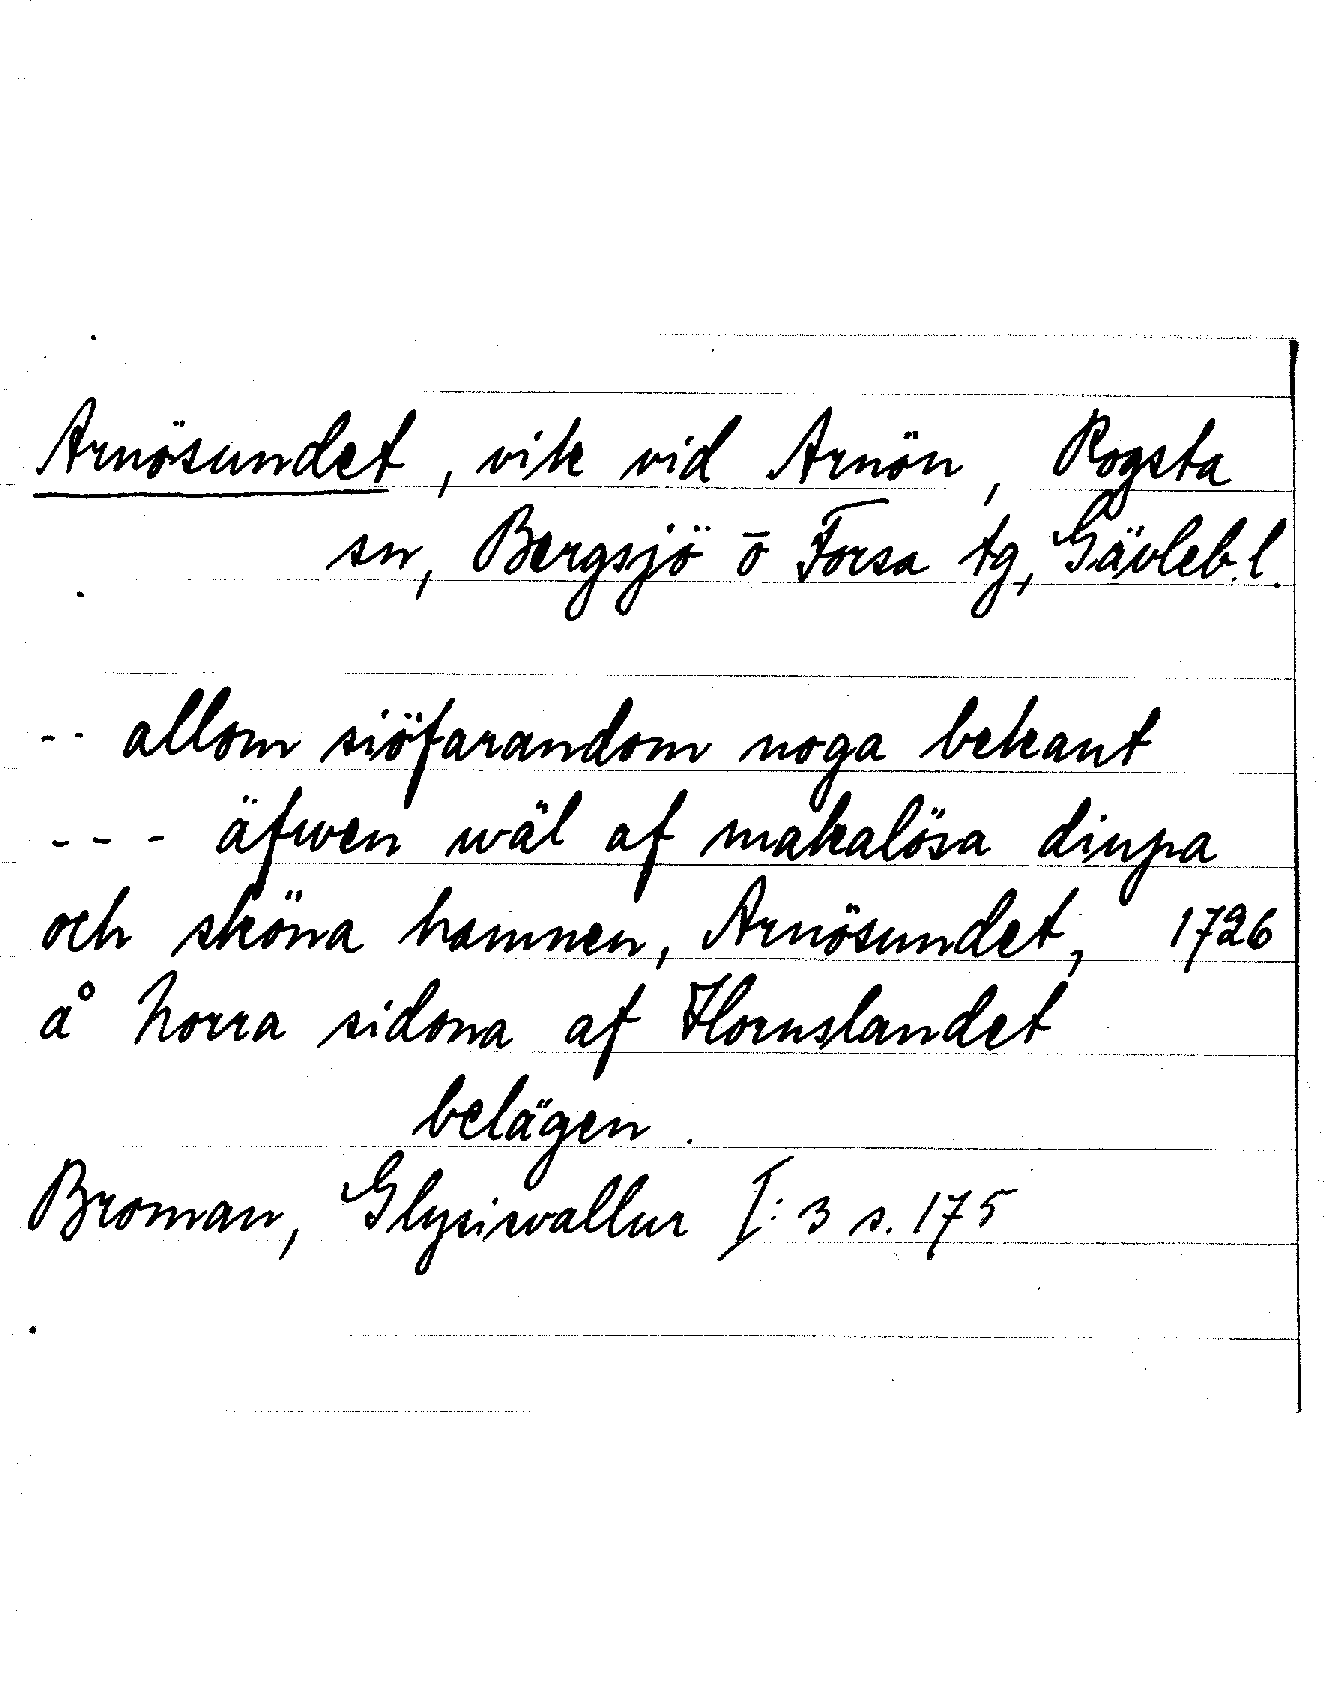 Arnösundet, vik vid Arnön, Rogsta
sn, Bergsjö o Forsa tg, Gävleb.l.
-- allom siöfarandom noga bekant
--- äfwen wäl af makalösa diupa
och sköna hamnen, Arnösundet, 1726
å norra sidona af Hornslandet
belägen.
Broman, Glysisvallur I:3 s. 175